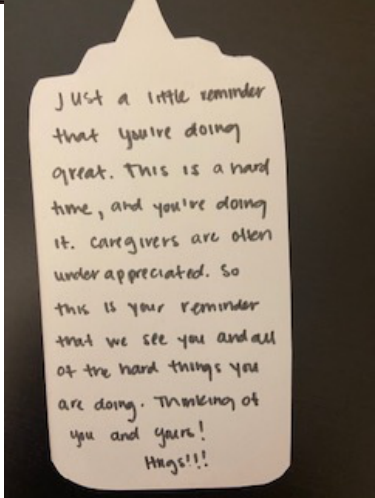 Just a little reminder
that you're doing
great. This is a hard
time, and you're doing
it. Caregivers are often
under appreciated. So
this is your reminder
that we see you and all
of the hard things you
are doing. Thinking of
you and yours!
Hugs!!!